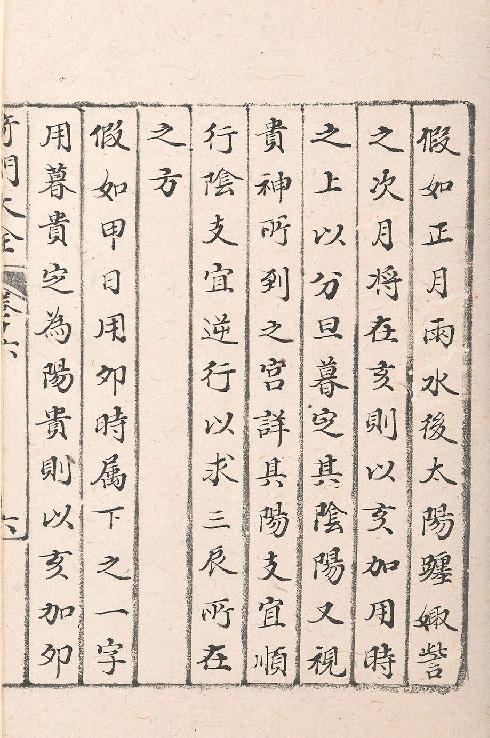 假如正月雨水後太陽躔娵訾
之次月將在亥則以亥加用時
之上以分旦暮定其陰陽又視
貴神所到之宮詳其陽支宜順
行陰支宜逆行以求三辰所在
之方
假如甲日用夘時属下之一字
用暮貴定為陽貴則以亥加夘
奇門大全 卷十六 六